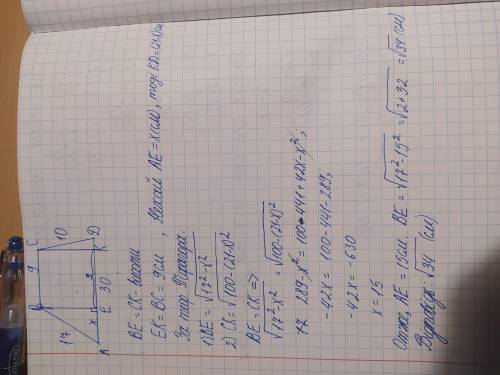 B 9 C
17 10
A x E 9 K D
30
BE = CK - висоти
EK = BC = 9см, Нехай AE = x(см), тоді KD = (21-x)см
За теор. Піфагора:
1) BE = √17²-x²
2) CK = √100-(21-x)²
BE = CK =>
√17²-x² = √100-(21-x)²
289-x² = 100-441+42x-x²;
-42x = 100-441-289;
-42x = -630
x = 15
Отже, AE = 15см. BE = √17²-15² = √2+32 = √34 (см)
Відповідь: √34 (см)